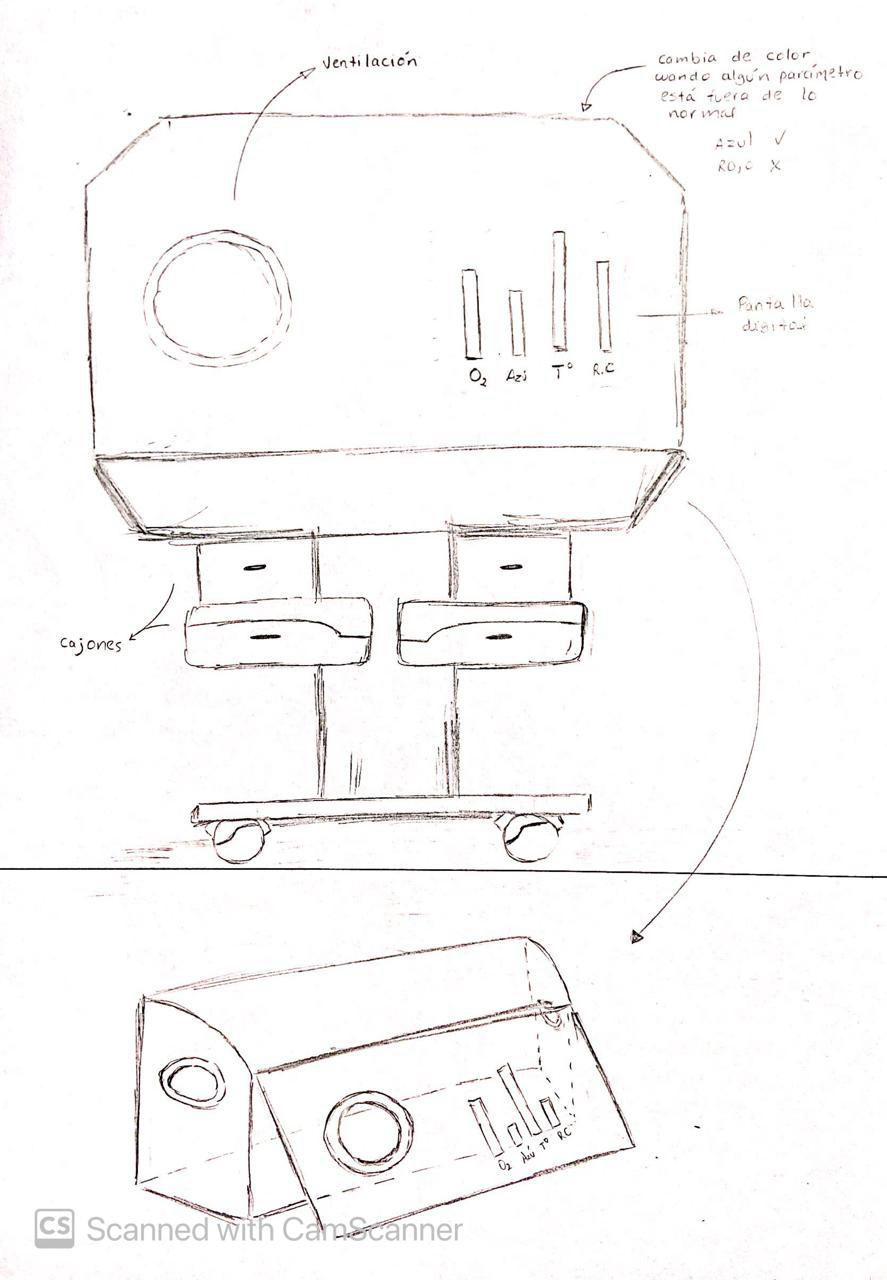 ventilación
cambia de color
cuando algún parámetro
está fuera de lo
normal
Azul ✓
Rojo X
Pantalla
digital
O₂ Azú T° R.C
cajones
O₂ Azú T° R.C
CS Scanned with CamScanner